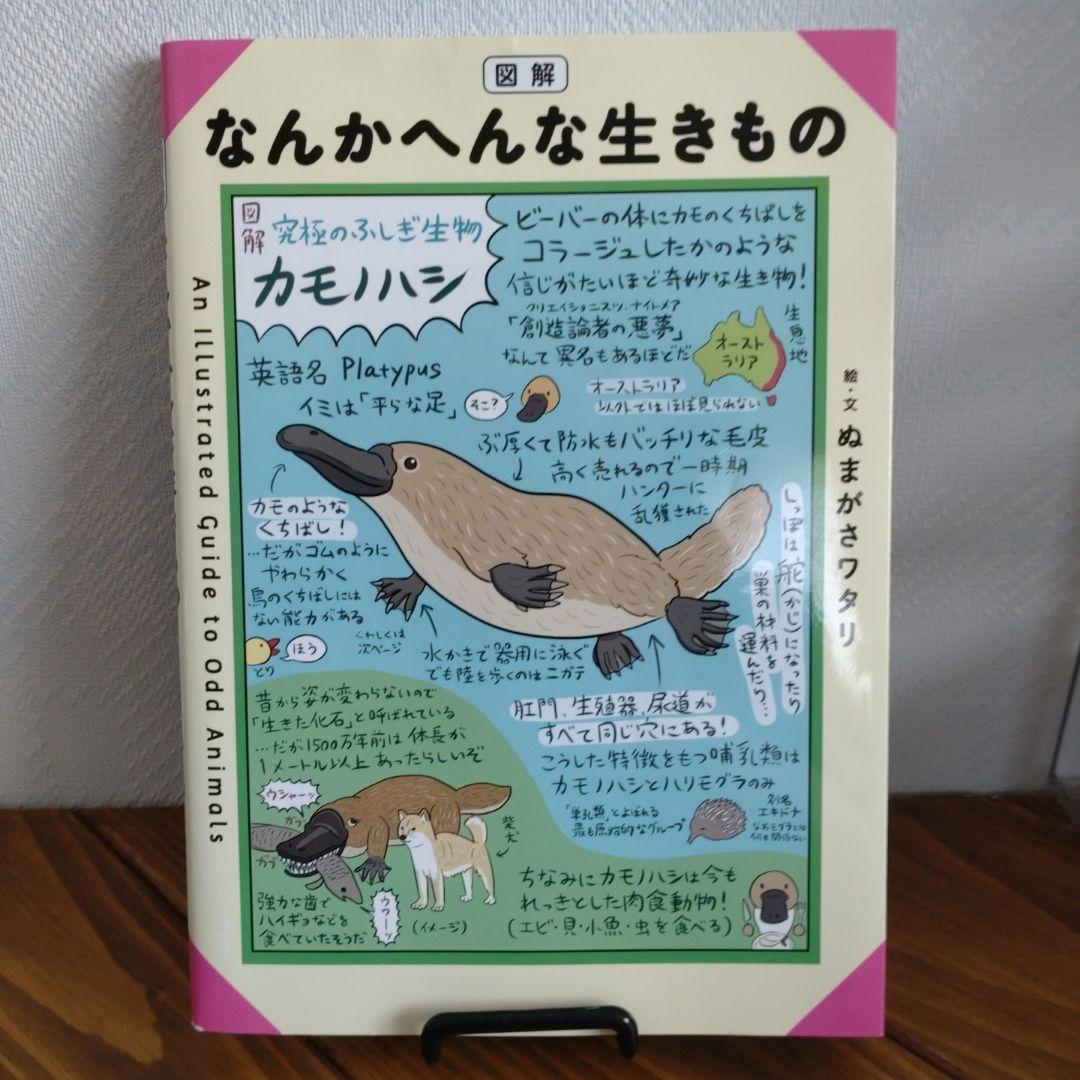 図解
なんかへんな生きもの
An Illustrated Guide to Odd Animals
絵・文 ぬまがさワタリ
図解
究極のふしぎ生物
カモノハシ
ビーバーの体にカモのくちばしを
コラージュしたかのような
信じがたいほど奇妙な生き物！
クリエイショニスツ・ナイトメア
「創造論者の悪夢」
なんて異名もあるほどだ
生息地
オースト
ラリア
オーストラリア
以外ではほぼ見られない
英語名 Platypus
イミは「平らな足」
そこ？
ぶ厚くて防水もバッチリな毛皮
高く売れるので一時期
ハンターに
乱獲された
カモのような
くちばし！
…だがゴムのように
やわらかく
鳥のくちばしには
ない能力がある
くわしくは
次ページ
ほう
とり
水かきで器用に泳ぐ
でも陸を歩くのはニガテ
しっぽは舵(かじ)になったり
巣の材料を
運んだり…
肛門、生殖器、尿道が
すべて同じ穴にある！
こうした特徴をもつ哺乳類は
カモノハシとハリモグラのみ
「単孔類」とよばれる
最も原始的なグループ
別名
エキドナ
なおモグラとは
何も関係ない
昔から姿が変わらないので
「生きた化石」と呼ばれている
…だが1500万年前は体長が
1メートル以上あったらしいぞ
ウシャーッ
ガブ
ガブ
柴犬
ウワーッ
強力な歯で
ハイギョなどを
食べていたそうだ
(イメージ)
ちなみにカモノハシは今も
れっきとした肉食動物！
(エビ・貝・小魚・虫を食べる)